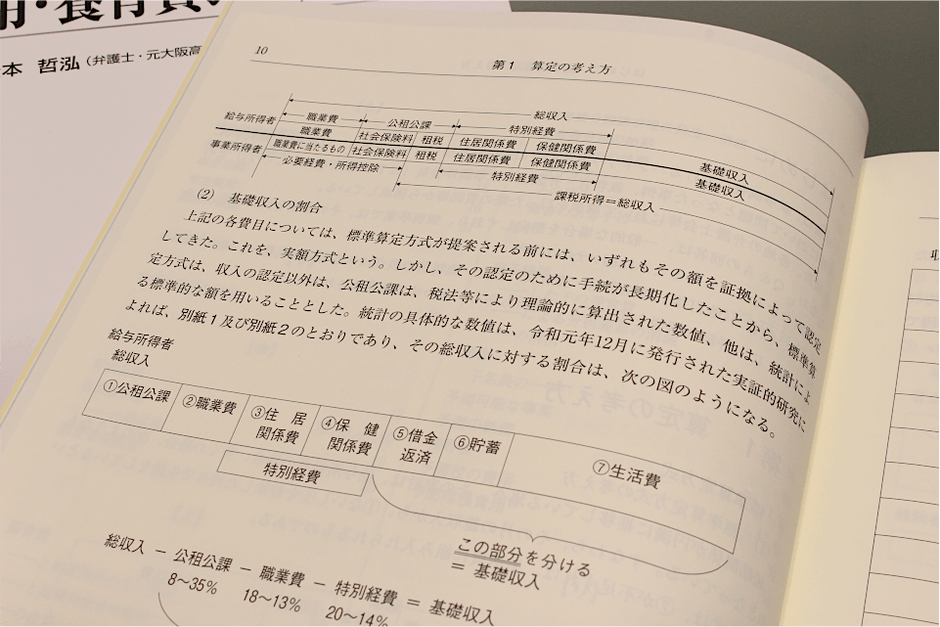 本 哲泓（弁護士・元大阪高
10
第1 算定の考え方
総収入
職業費 公租公課 特別経費
給与所得者 職業費 社会保険料 租税 住居関係費 保健関係費 基礎収入
事業所得者 職業費に当たるもの 社会保険料 租税 住居関係費 保健関係費 基礎収入
必要経費・所得控除 特別経費
課税所得＝総収入
(2) 基礎収入の割合
上記の各費目については、標準算定方式が提案される前には、いずれもその額を証拠によって認定
してきた。これを、実額方式という。しかし、その認定のために手続が長期化したことから、標準算
定方式は、収入の認定以外は、公租公課は、税法等により理論的に算出された数値、他は、統計によ
る標準的な額を用いることとした。統計の具体的な数値は、令和元年12月に発行された実証的研究に
よれば、別紙1及び別紙2のとおりであり、その総収入に対する割合は、次の図のようになる。
給与所得者
総収入
①公租公課 ②職業費 ③住居関係費 ④保健関係費 ⑤借金返済 ⑥貯蓄 ⑦生活費
特別経費
この部分を分ける
＝基礎収入
総収入 － 公租公課 － 職業費 － 特別経費 ＝ 基礎収入
8～35% 18～13% 20～14%